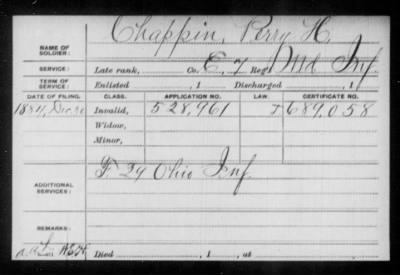 NAME OF SOLDIER: Chappin, Perry H.
SERVICE: Late rank, Co. E, 7 Reg't Ind Inf.
TERM OF SERVICE: Enlisted , 1 Discharged , 1
DATE OF FILING. CLASS. APPLICATION NO. LAW. CERTIFICATE NO.
1884, Dec. 30 Invalid, 528,961 J 689,058
Widow,
Minor,
ADDITIONAL SERVICES: F 29 Ohio Inf
REMARKS:
Died , 1 , at